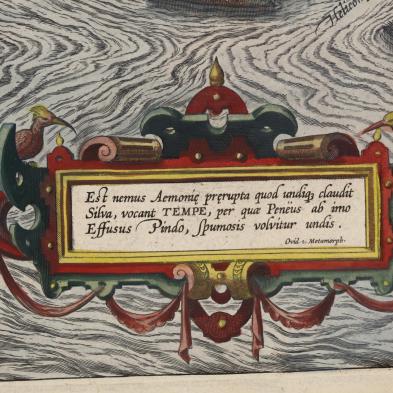 Helicon
Est nemus Aemonię pręrupta quod undiq₃ claudit
Silva, vocant TEMPE, per quæ Penëus ab imo
Effusus Pindo, spumosis volvitur undis.
Ovid. 1. Metamorph.